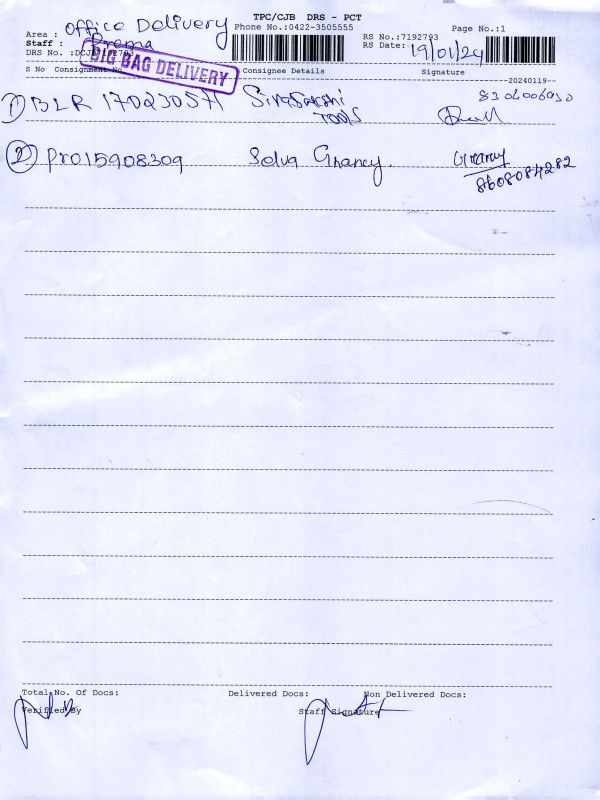 TPC/CJB DRS - PCT
Area : Office Delivery Phone No.:0422-3505555 Page No.:1
Staff : Prema RS No.:7192793
RS Date: 19/01/24
DRS No. :DCJB7192793
BIG BAG DELIVERY
S No Consignment No Consignee Details Signature
20240119
1) BLR 170230571 Sivasakthi Tools
2) PT015908309 Selva Graney. Graney
8608084282
Total No. Of Docs: Delivered Docs: Non Delivered Docs:
Verified By Staff Signature